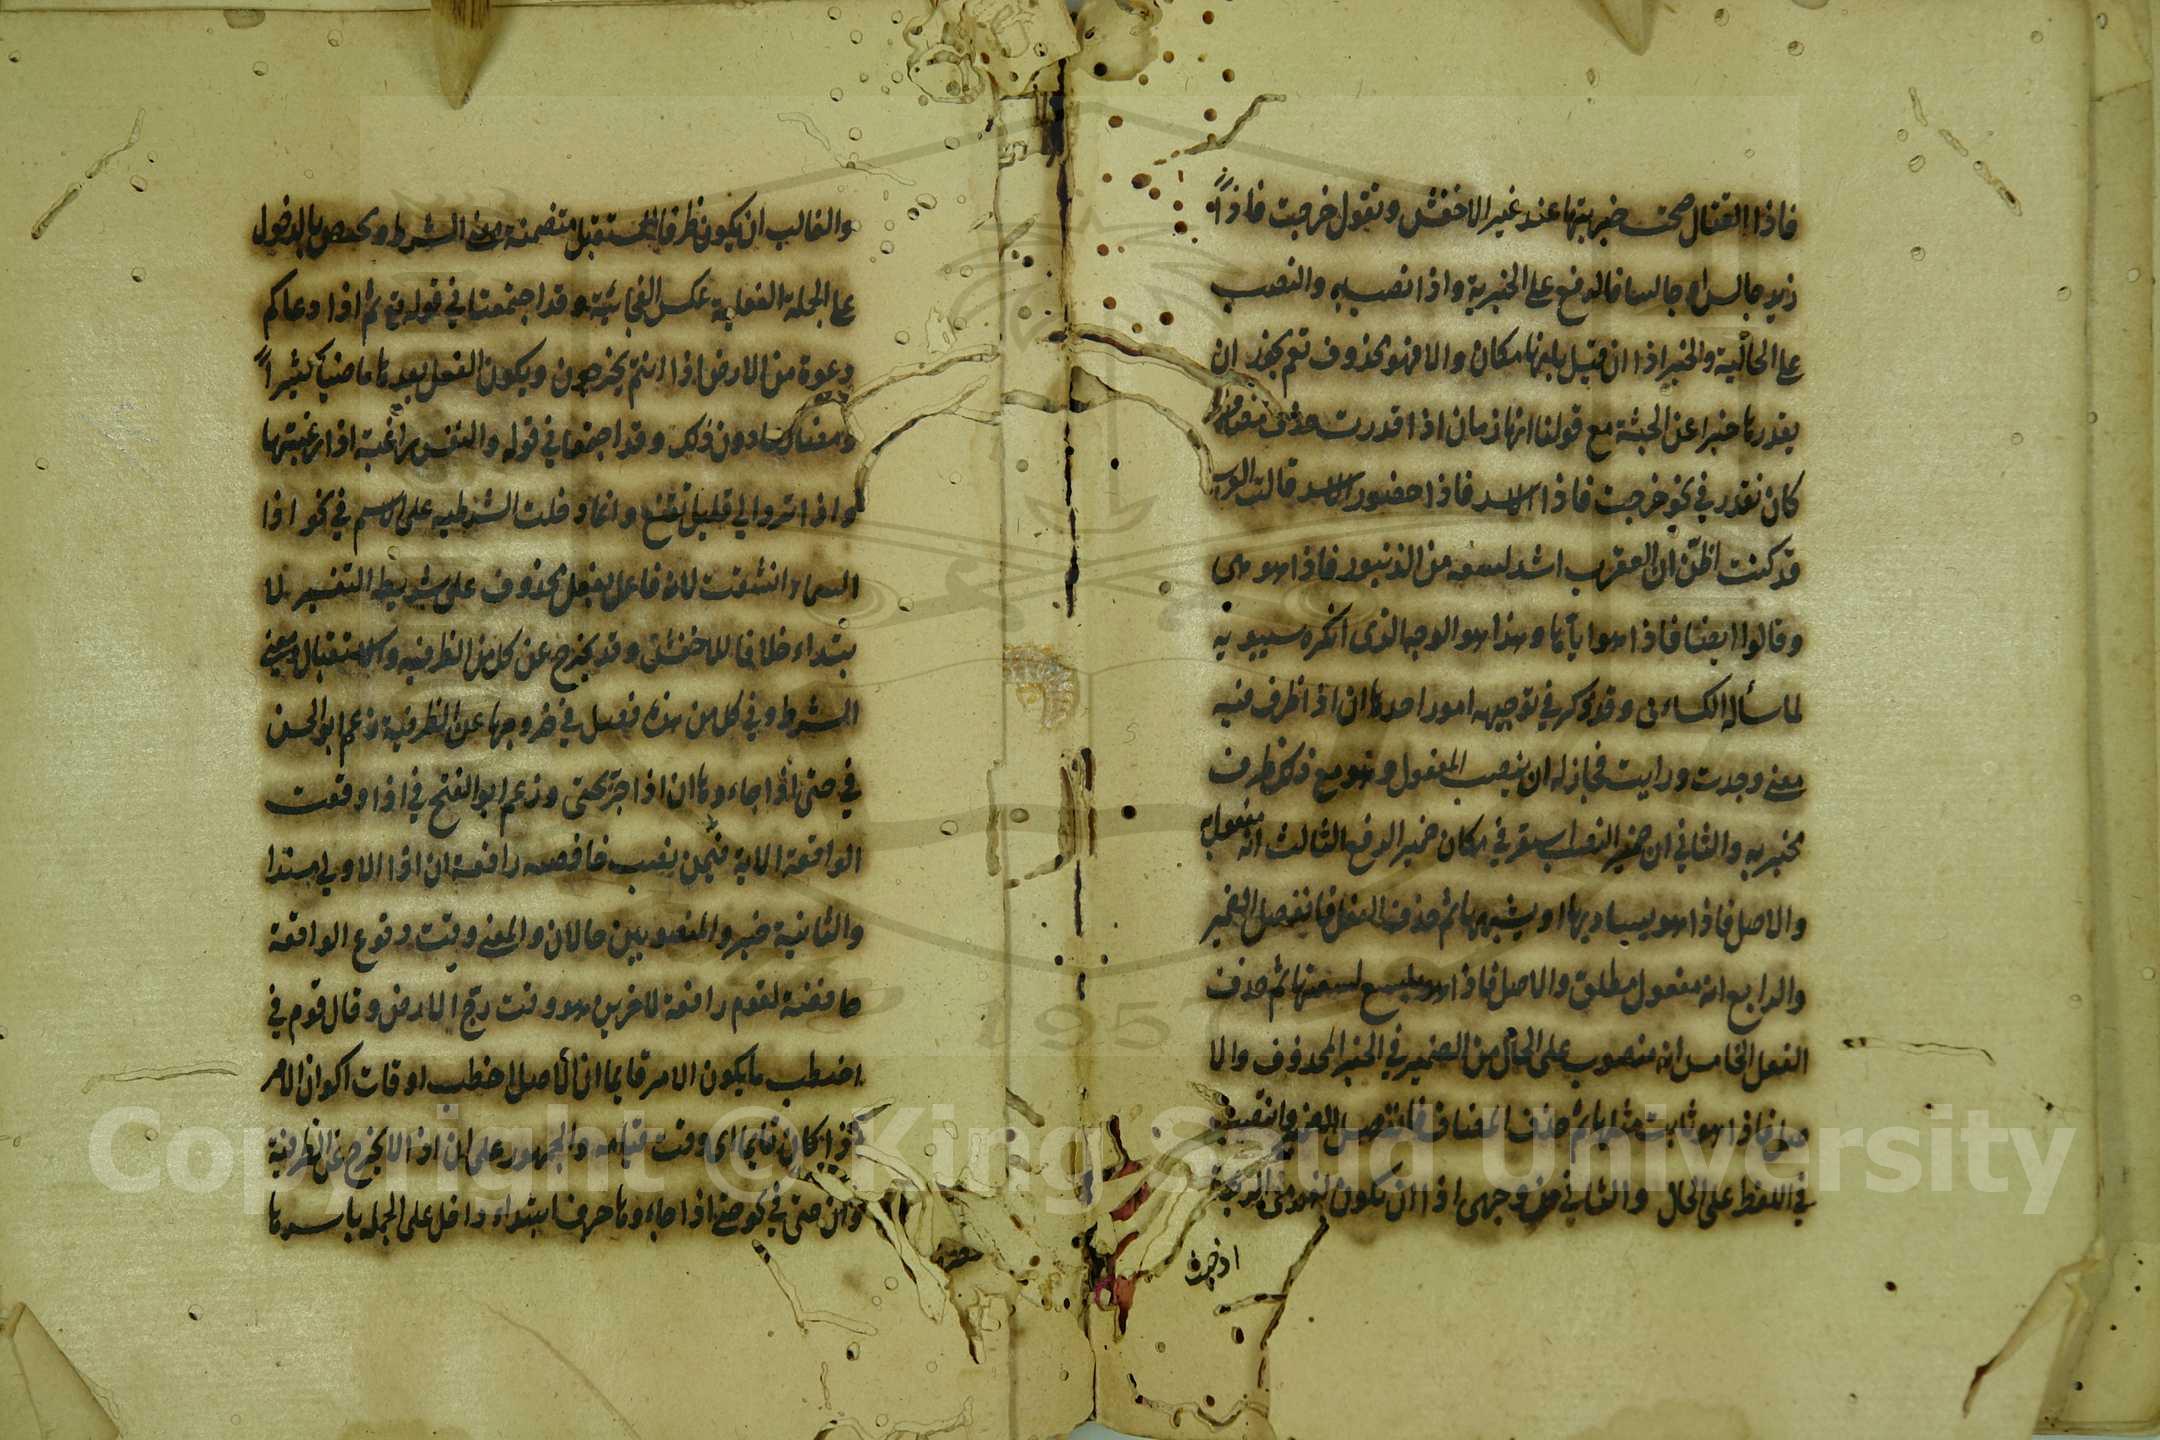 فاذا القتال صحت خبريتها عند غير الاخفش وتقول خرجت فاذا
زيد جالس او جالسا فالرفع على الخبرية واذا نصب به والنصب
على الحالية والخبر اذا ان قيل بانها مكان والا فهو محذوف نعم يجوز ان
يقدرها خبرا عن الجثة مع قولنا انها زمان اذا قدرت حذف مضاف
كان نقدر في نحو خرجت فاذا الاسد فاذا حضور الاسد قالت العرب
قد كنت اظن ان العقرب اشد لسعه من الزنبور فاذا هو هي
وقالوا ايضا فاذا هو اياها وهذا هو الوجه الذي انكره سيبويه
لما سأله الكسائي وقد ذكر في توجيهه امور احدها ان اذا ظرف فيه
معنى وجدت ورايت فجاز له ان ينصب المفعول وهو مع ذلك ظرف
مخبر به والثاني ان ضمير النصب استعير في مكان ضمير الرفع الثالث انه مفعول به
والاصل فاذا هو يساويها او يشبهها ثم حذف الفعل فانفصل الضمير
والرابع انه مفعول مطلق والاصل فاذا هو يلسع لسعتها ثم حذف
الفعل الخامس انه منصوب على الحال من الضمير في الخبر المحذوف والا
صل فاذا هو ثابت مثلها ثم حذف المضاف فانفصل الضمير وانتصب
في اللفظ على الحال والثاني من وجهى اذا ان تكون لغير
والغالب ان يكون ظرفا للمستقبل متضمنة معنى الشرط ويختص بالدخول
على الجملة الفعلية عكس الفجائية وقد اجتمعتا في قوله تع ثم اذا دعاكم
دعوة من الارض اذا انتم تخرجون ويكون الفعل بعدها ماضيا كثيرا
ومضارعا دون ذلك وقد اجتمعا في قوله والنفس راغبة اذا رغبتها
واذا ترد الى قليل تقنع وانما دخلت الشرطيه على الاسم في نحو اذا
السماء انشقت لانه فاعل بفعل محذوف على شريطة التفسير لا
بتداء خلافا للاخفش وقد يخرج عن كل من الظرفيه والاستقبال ومعنى
الشرط وفي كل من هذه فصل في خروجها عن الظرفية زعم ابو الحسن
في حتى اذا جاءوها ان اذا جر بحتى وزعم ابو الفتح في اذا وقعت
الواقعة الاية فيمن نصب خافضه رافعة ان اذا الاولى مبتدا
والثانية خبر والمنصوبين حالان والمعنى وقت وقوع الواقعة
خافضة لقوم رافعة لاخرين هو وقت رج الارض وقال قوم في
اخطب ما يكون الامر قايما ان الاصل اخطب اوقات اكوان الامر
اذا كان قايما اي وقت قيامه والجمهور على ان اذا لا يخرج عن الظرفية
وان حتى في نحو حتى اذا جاءوها حرف ابتداء داخل على الجمله باسرها
Copyright © King Saud University
1957